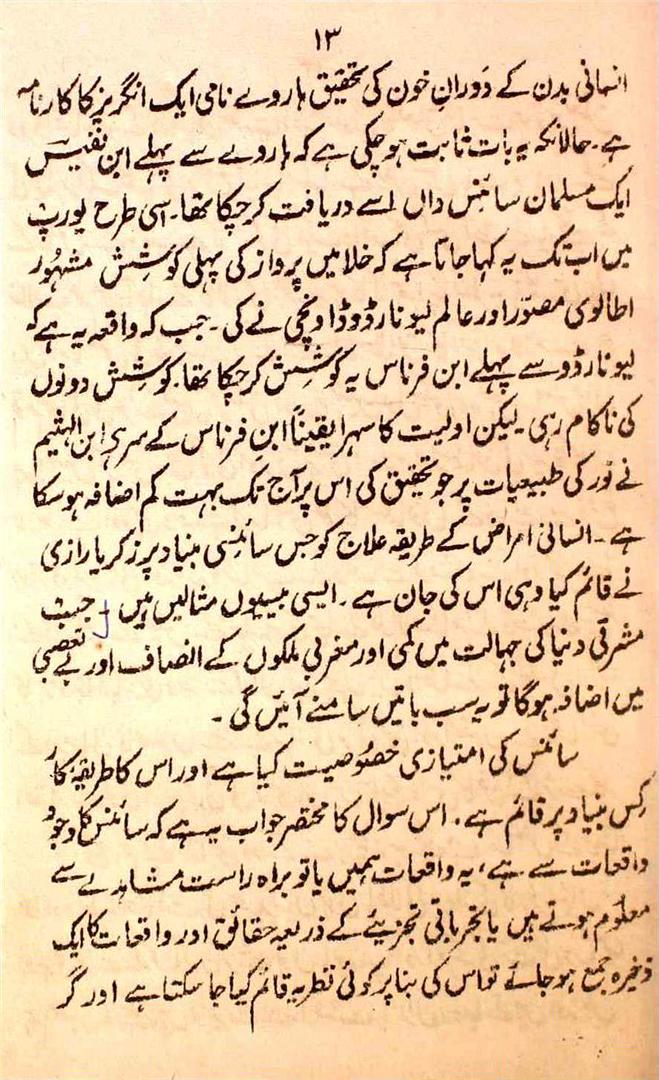 ۱۳
انسانی بدن کے دَورانِ خون کی تحقیق ہاروے نامی ایک انگریز کا کارنامہ
ہے۔ حالانکہ یہ بات ثابت ہوچکی ہے کہ ہاروے سے پہلے ابن نفیس
ایک مسلمان سائنس داں اسے دریافت کرچکا تھا۔ اسی طرح یورپ
میں اب تک یہ کہا جاتا ہے کہ خلا میں پرواز کی پہلی کوشِش مشہُور
اطالوی مصوّر اور عالم لیونارڈو ڈاونچی نے کی۔ جب کہ واقعہ یہ ہے کہ
لیونارڈو سے پہلے ابن فرناس یہ کوشِش کرچکا تھا۔ کوشِش دونوں
کی ناکام رہی۔ لیکن اولیت کا سہرا یقیناً ابن فرناس کے سر ہے۔ ابن الہثیم
نے نُور کی طبیعیات پر جو تحقیق کی اس پر آج تک بہت کم اضافہ ہوسکا
ہے۔ انسانی امراض کے طریقہ علاج کو جس سائنسی بنیاد پر زکریا رازی
نے قائم کیا وہی اس کی جان ہے۔ ایسی بیسیوں مثالیں ہیں۔ جب
مشرقی دنیا کی جہالت میں کمی اور مغربی ملکوں کے انصاف اور بے تعصبی
میں اضافہ ہوگا تو یہ سب باتیں سامنے آئیں گی۔
سائنس کی امتیازی خصُوصیت کیا ہے اور اس کا طریقۂ کار
کِس بنیاد پر قائم ہے۔ اس سوال کا مختصر جواب یہ ہے کہ سائنس کا وجود
واقعات سے ہے، یہ واقعات ہمیں یا تو براہ راست مشاہدے سے
معلُوم ہوتے ہیں یا تجرباتی تجزیئے کے ذریعہ حقائق اور واقعات کا ایک
ذخیرہ جمع ہوجائے تو اس کی بنا پر کوئی نظریہ قائم کیا جاسکتا ہے اور گر